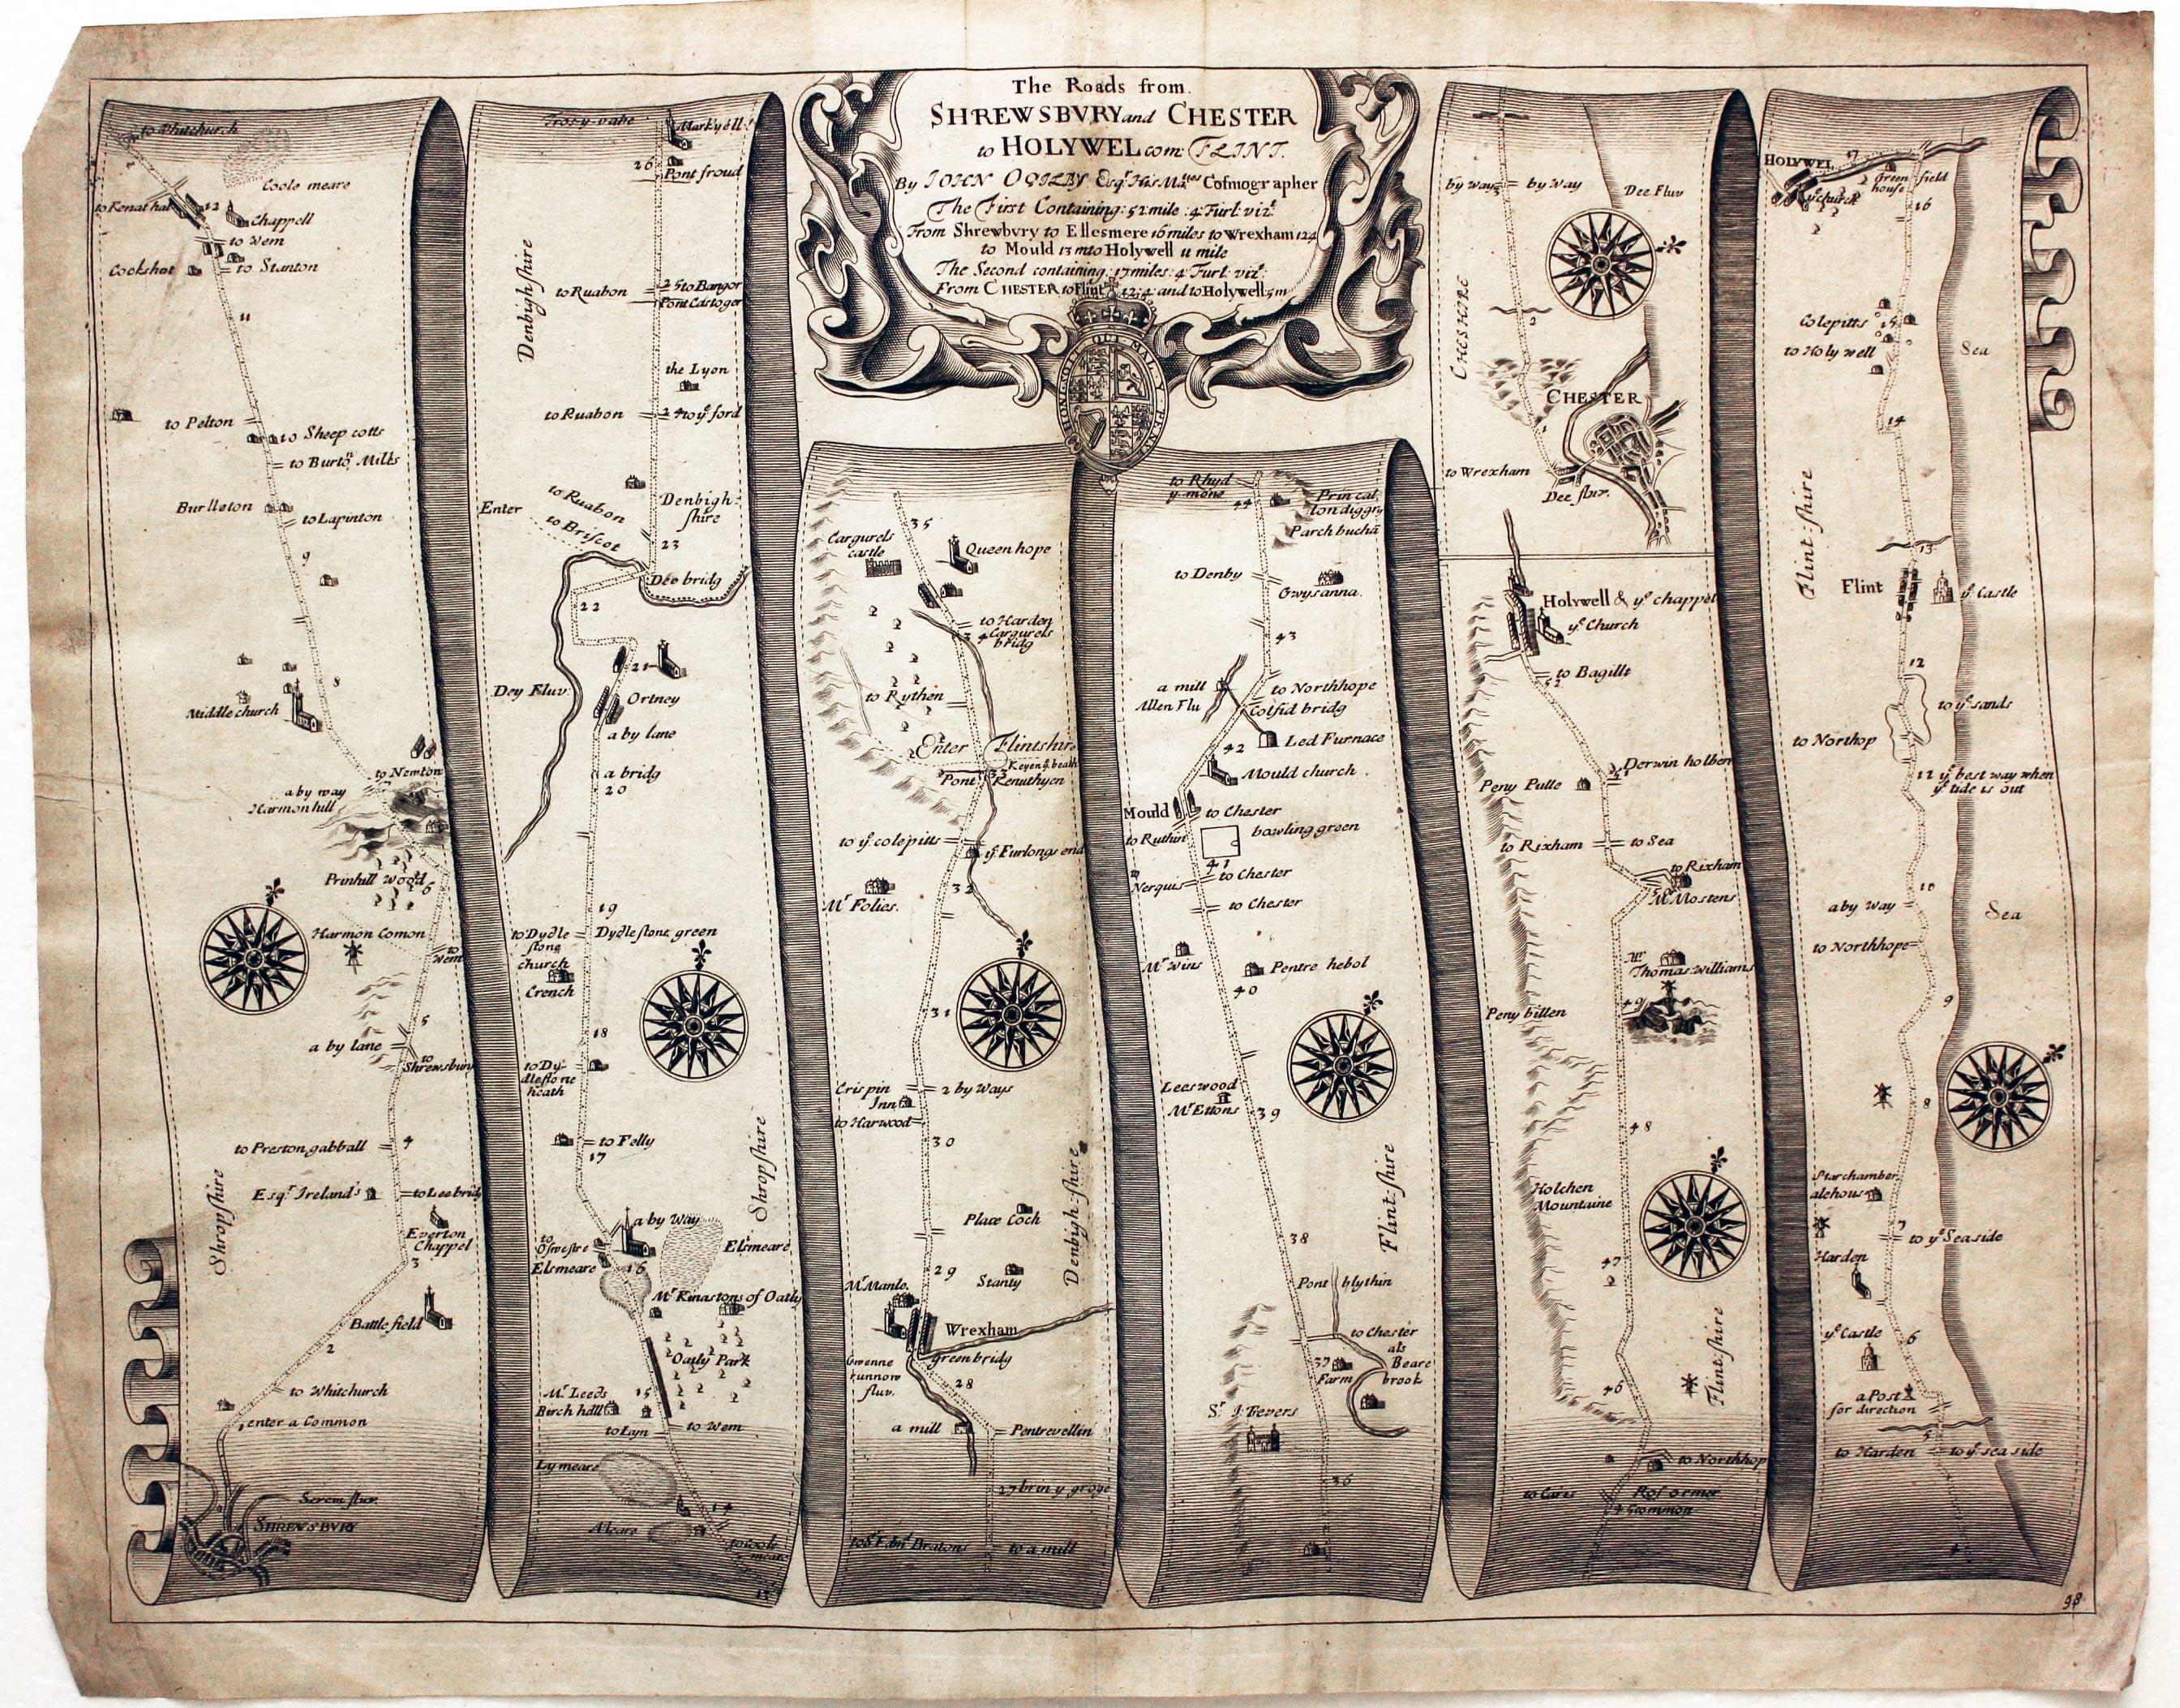 The Roads from
SHREWSBVRY and CHESTER
to HOLYWEL com: FLINT.
By IOHN OGILBY Esqr. His Maties Cosmographer
The First Containing: 52 mile: 4: Furl: vizt.
From Shrewbvry to Ellesmere 16 miles to Wrexham 12:4
to Mould 13 m to Holywell 11 mile
The Second containing: 17 miles: 4: Furl: vizt:
From CHESTER to Flint 12:4: and to Holywell: 5 m
HONI SOIT QUI MAL Y PENSE
to Whitchurch
Coole meare
to Kenathal
12
Chappell
to Wem
Cockshot
to Stanton
11
to Pelton
10
Sheep cotts
to Burton Mills
Burlleton
to Lapinton
9
8
Middle church
to Newton
7
a by way
Harmon hill
Prinhill Wood
6
Harmon Comon
to Wem
5
a by lane
to Shrewsbury
4
to Preston gabball
Esqr. Ireland's
to Lee bridg
Everton Chappel
3
Shropshire
Battlefield
2
to Whitchurch
1
enter a Common
Severn flu.
SHREWSBVRY
Marky ell
26
Pont froud
Denbighshire
to Ruabon
25 to Bangor
Pont Castoger
the Lyon
to Ruabon
24 to ye ford
to Ruabon
Enter
Denbighshire
to Briscot
23
Dee bridg
22
21
Dey Fluv:
Ortney
a by lane
a bridg
20
19
to Dydlestone church
Dydlestone green
Crench
18
to Dydlestone heath
to Felly
17
Shropshire
a by Way
to Oswestre
Elsmeare
Elsmeare
16
Mr Kinastons of Oatly
Oatly Park
Mr. Leeds
Birch hall
15
to Lyn
to Wem
Ly meare
14
A leare
to Cole meare
13
35
Cargurels castle
Queen hope
to Harden
34
Cargurels bridg
to Rythen
Enter Flintshire
33
Pont Kenuthyen
to ye colepitts
ye Furlongs end
32
Mr Folies.
31
Crispin Inn
2 by Ways
to Harwood
30
Place Coch
Denbigh-shire
29
Stanty
Mr Manle
Wrexham
greenbridg
Gwenne kunnow fluv.
28
a mill
Pentrevellin
27
to a mill
to Rhyd y mone
44
Parch bucha
to Denby
Gwysanna.
43
a mill
to Northhope
Allen Flu
Colfid bridg
42
Led Furnace
Mould church
Mould
to Chester
to Ruthin
bowling green
41
to Chester
to Nerquis
to Chester
Mr Wins
Pentre hebol
40
Leeswood
Mr Ettons
39
Flint-shire
38
Pont blythin
to Chester
als Beare brook
37
Farm
Sr. J. Trevers
36
by way
by way
Dee Fluv
CHESHIRE
2
CHESTER
1
to Wrexham
Dee fluv.
Holywell & ye chappel
ye Church
to Bagillt
52
Derwin holben
51
Peny Pulle
to Rixham
to Sea
to Rixham
50
Mr Mostens
Mr. Thomas Williams
49
Peny billen
48
Holchen Mountaine
47
Flint-shire
46
to Northhop
45
Common
HOLYWEL
17
ye church
Green house
field
16
Colepitts
15
to Holy well
Sea
14
Flint-shire
13
Flint
ye Castle
12
to ye sands
to Northop
11 ye best way when
ye tide is out
10
a by Way
Sea
to Northhope
9
8
Starchamber alehous
7
to ye Sea side
Harden
ye Castle
6
a Post for direction
5
to Harden
to ye sea side
98